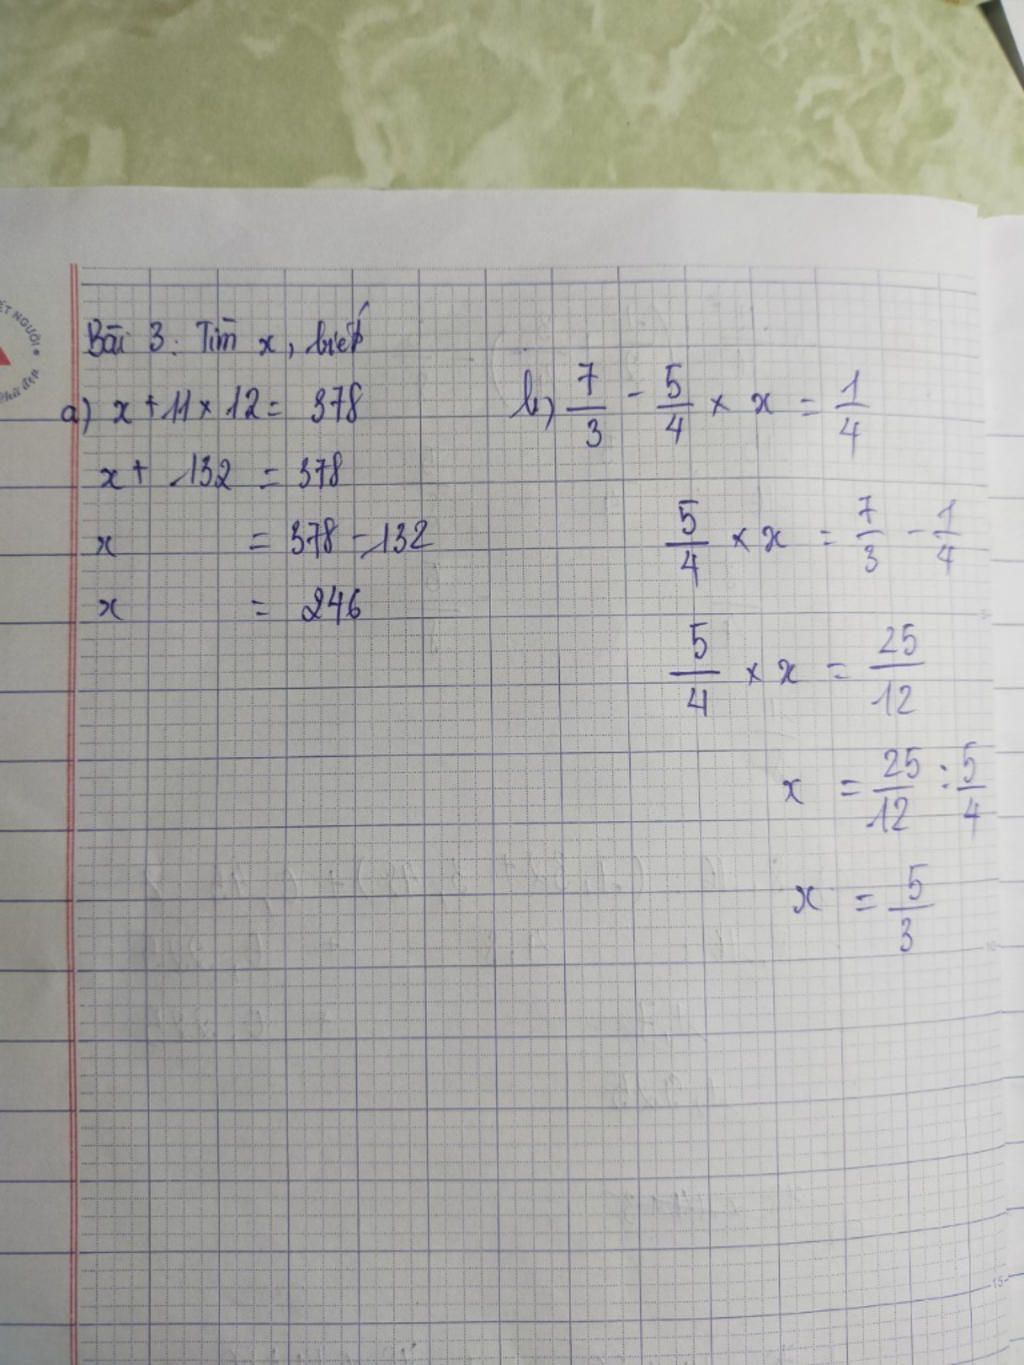 Bài 3: Tìm x, biết
a) x + 11 × 12 = 378
x + 132 = 378
x = 378 - 132
x = 246
b) 7/3 - 5/4 × x = 1/4
5/4 × x = 7/3 - 1/4
5/4 × x = 25/12
x = 25/12 : 5/4
x = 5/3
10
15